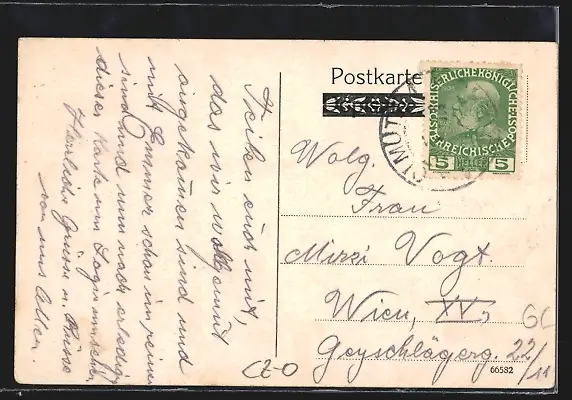 Postkarte
KAISERLICHE KÖNIGLICHE ÖSTERREICHISCHE POST
5 HELLER 5
OLMÜTZ
Wolg.
Frau
Mizzi Vogt.
Wien, XV.,
Geyschlägerg. 22/11
66582
GL
CZ-O
Teilen euch mit,
das wir wolgemut
angekommen sind und
mit Emmer schon im reinen
sind und nun nach
dieser Karte um Login
Herzlich Grüsse u. Küsse
von uns Allen.